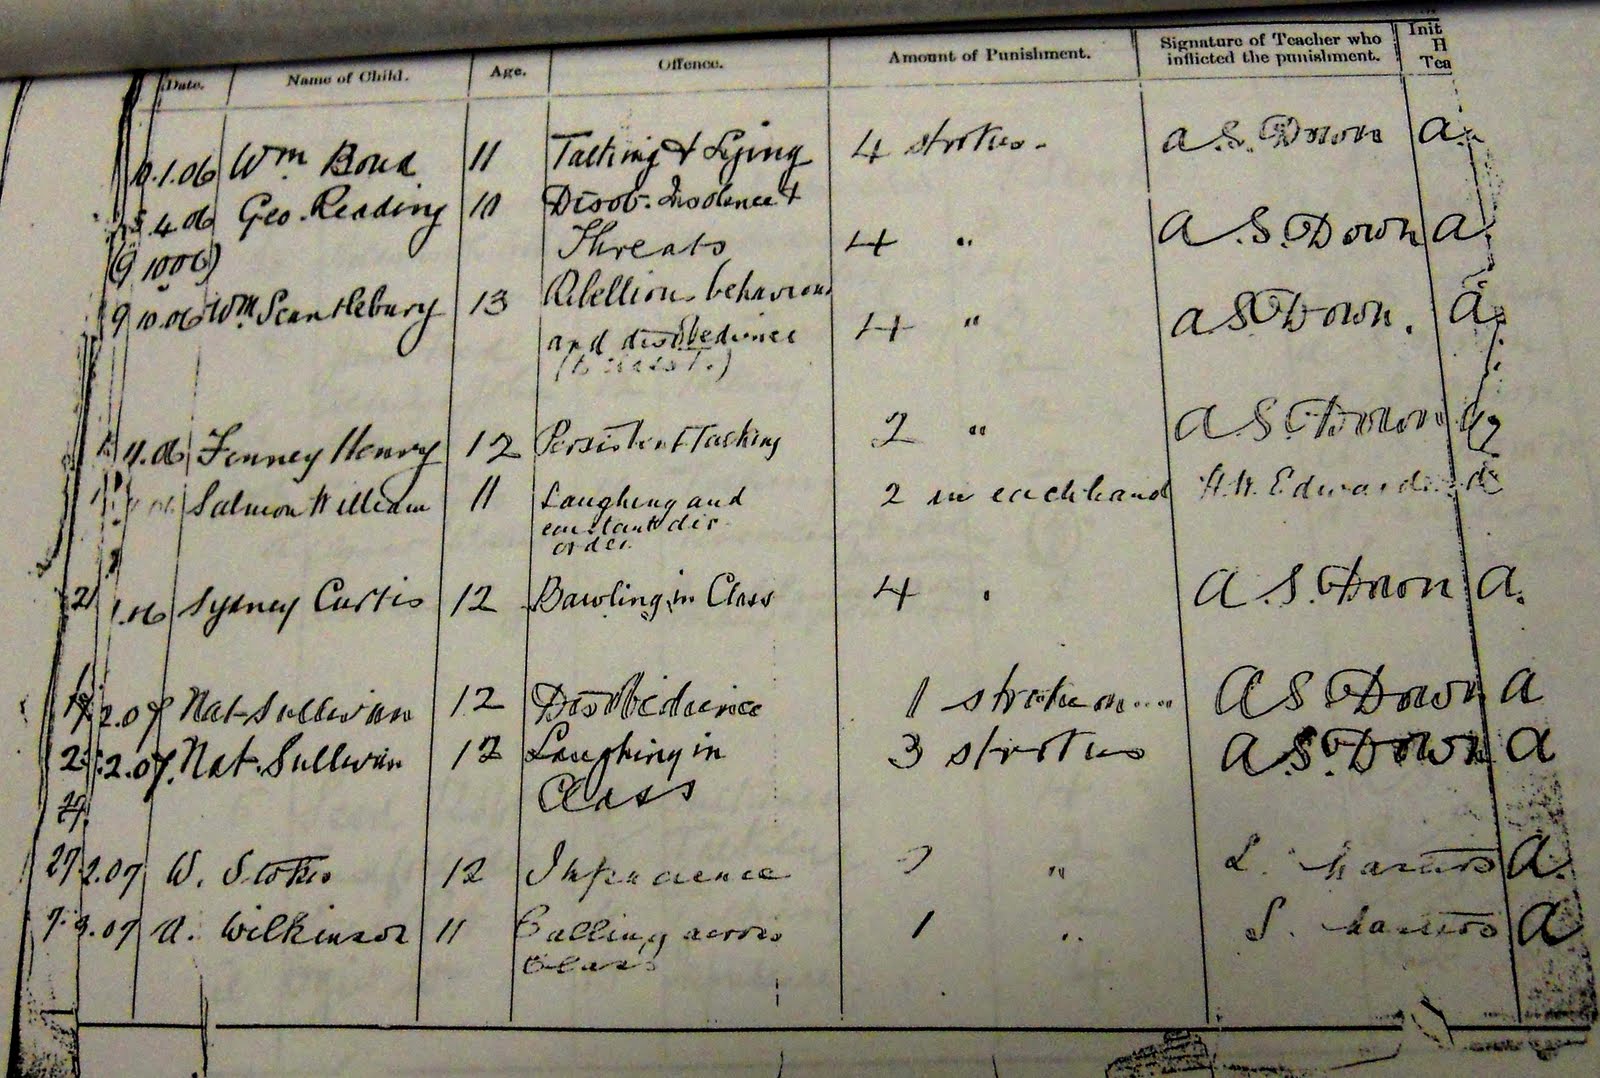 Date. Name of Child. Age. Offence. Amount of Punishment. Signature of Teacher who inflicted the punishment. Init H Tea
10.1.06 Wm Bond 11 Talking & Lying 4 strokes. A. S. Down A.
.4.06 Geo. Reading 10 Disob. Insolence &
(9 10 06) Threats 4 " A. S. Down A.
9 10.06 Wm Scantlebury 13 Rebellious behaviour
and disobedience 4 " A S Down. A.
11.06 Fenney Henry 12 Persistent Talking 2 " A. S. Down
Salmon William 11 Laughing and 2 in each hand H. W. Edwards
constant dis
order.
21 .06 Sydney Curtis 12 Bawling in Class 4 " A. S. Down A.
2.07 Nat Sullivan 12 Disobedience 1 stroke on A S Down A
2.07. Nat. Sullivan 12 Laughing in 3 strokes A. S. Down A
Class
27.2.07 W. Stokes 12 Impudence " L. A.
7.3.07 A. Wilkinson 11 Calling across 1 " A
Class